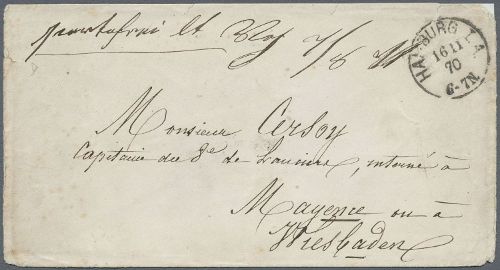 portofrei lt
HAMBURG I.A.
16 11
70
6-7N.
Monsieur Cersoy
Capitaine du 8e de Lanciers, interné à
Mayence ou à
Wiesbaden